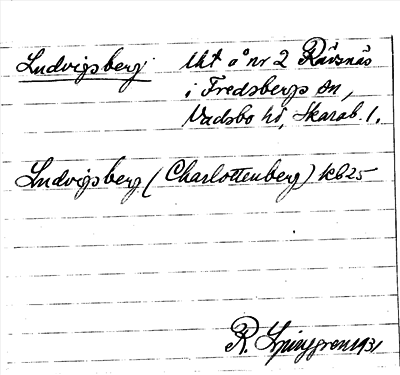 Ludvigsberg lht å nr 2 Rävsnäs
i Fredsbergs sn,
Vadsbo hd, Skarab. l.
Ludvigsberg (Charlottenberg) kb 25
R. Ljunggren 1931